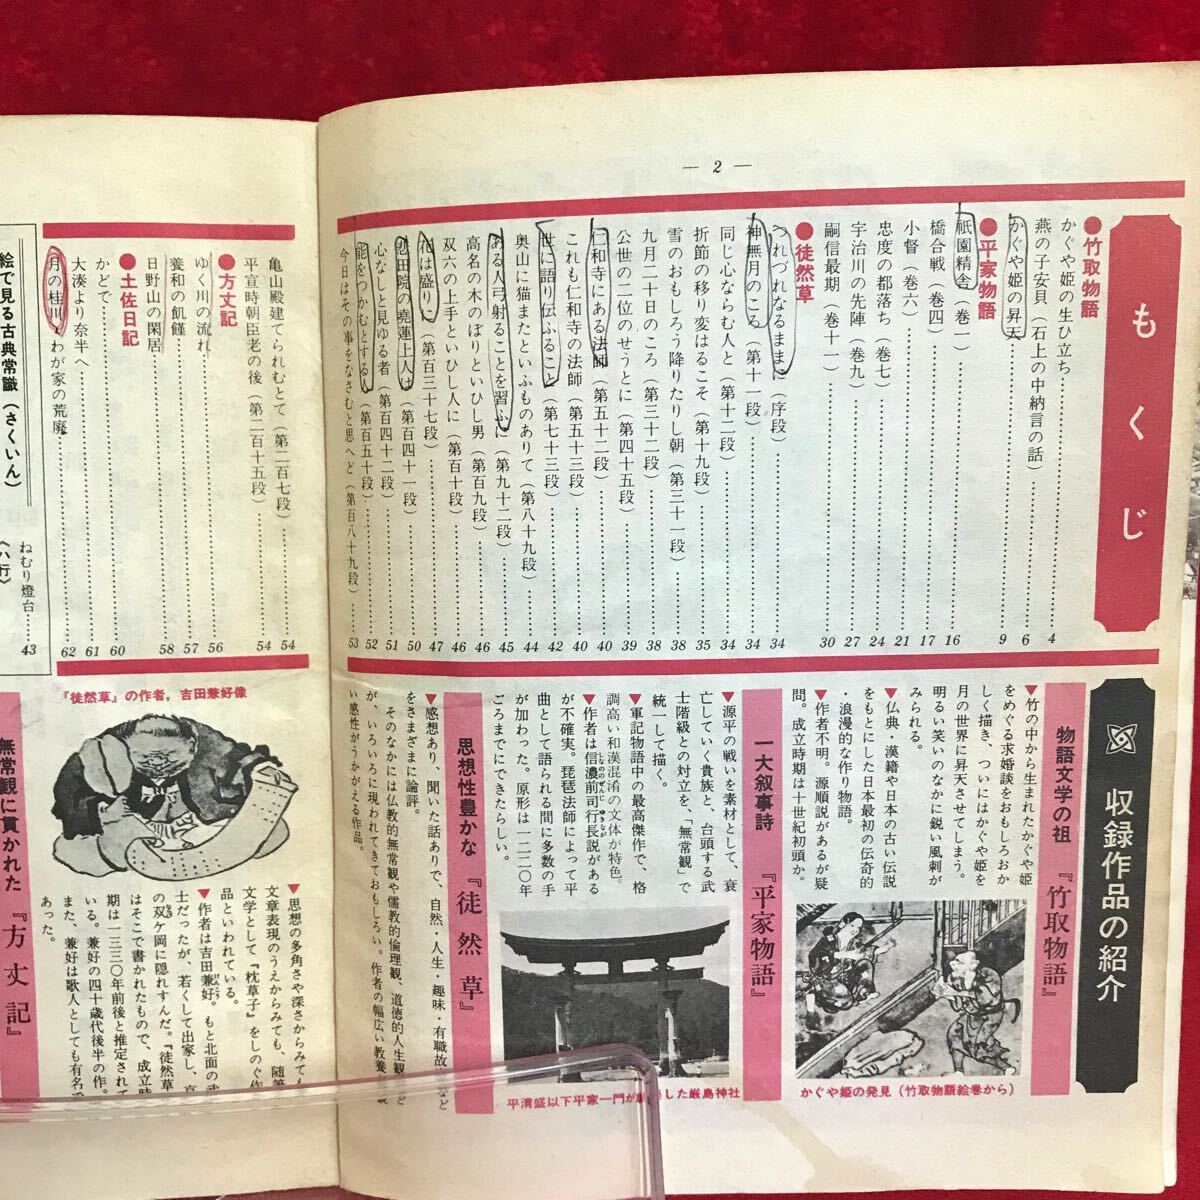 — 2 —
もくじ
●竹取物語
かぐや姫の生ひ立ち……4
燕の子安貝（石上の中納言の話）……6
かぐや姫の昇天……9
●平家物語
祇園精舎（巻一）……16
橋合戦（巻四）……17
小督（巻六）……21
忠度の都落ち（巻七）……24
宇治川の先陣（巻九）……27
嗣信最期（巻十一）……30
●徒然草
つれづれなるままに（序段）……34
神無月のころ（第十一段）……34
同じ心ならむ人と（第十二段）……34
折節の移り変はるこそ（第十九段）……35
雪のおもしろう降りたりし朝（第三十一段）……38
九月二十日のころ（第三十二段）……38
公世の二位のせうとに（第四十五段）……39
仁和寺にある法師（第五十二段）……40
これも仁和寺の法師（第五十三段）……40
世に語り伝ふること（第七十三段）……42
奥山に猫またといふものありて（第八十九段）……44
ある人弓射ることを習ふに（第九十二段）……45
高名の木のぼりといひし男（第百九段）……46
双六の上手といひし人に（第百十段）……46
花は盛りに（第百三十七段）……47
悲田院の尭蓮上人は（第百四十一段）……50
心なしと見ゆる者（第百四十二段）……51
能をつかむとする人（第百五十段）……52
今日はその事をなさむと思へど（第百八十九段）……53
亀山殿建てられむとて（第二百七段）……54
平宣時朝臣老の後（第二百十五段）……54
●方丈記
ゆく川の流れ……56
養和の飢饉……57
日野山の閑居……58
●土佐日記
かどで……60
大湊より奈半へ……61
月の桂川・わが家の荒廃……62
絵で見る古典常識（さくいん）
ねむり燈台……43
〈ハ行〉
収録作品の紹介
物語文学の祖『竹取物語』
▼竹の中から生まれたかぐや姫
をめぐる求婚談をおもしろおか
しく描き、ついにはかぐや姫を
月の世界に昇天させてしまう。
明るい笑いのなかに鋭い風刺が
みられる。
▼仏典・漢籍や日本の古い伝説
をもとにした日本最初の伝奇的
・浪漫的な作り物語。
▼作者不明。源順説があるが疑
問。成立時期は十世紀初頭か。
かぐや姫の発見（竹取物語絵巻から）
一大叙事詩『平家物語』
▼源平の戦いを素材として、衰
亡していく貴族と、台頭する武
士階級との対立を、「無常観」で
統一して描く。
▼軍記物語中の最高傑作で、格
調高い和漢混淆の文体が特色。
▼作者は信濃前司行長説がある
が不確実。琵琶法師によって平
曲として語られる間に多数の手
が加わった。原形は一二二〇年
ごろまでにできたらしい。
平清盛以下平家一門が した厳島神社
思想性豊かな『徒然草』
▼感想あり、聞いた話ありで、自然・人生・趣味・有職故 など
をさまざまに論評。
そのなかには仏教的無常観や儒教的倫理観、道徳的人生観 ど
が、いろいろに現われてきておもしろい。作者の幅広い教養 鋭
い感性がうかがえる作品。
『徒然草』の作者，吉田兼好像
▼思想の多角さや深さからみても、
文章表現のうえからみても、随筆
文学として『枕草子』をしのぐ作
品といわれている。
▼作者は吉田兼好。もと北面の武
士だったが、若くして出家し、京
の双ケ岡に隠れすんだ。『徒然草
はそこで書かれたもので、成立時
期は一三三〇年前後と推定されて
いる。兼好の四十歳代後半の作。
また、兼好は歌人としても有名で
あった。
無常観に貫かれた『方丈記』